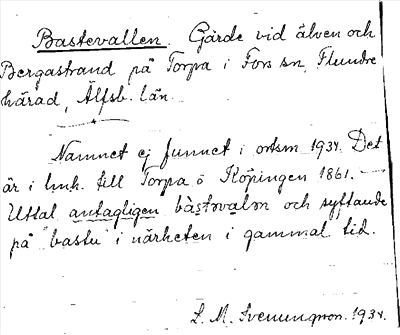 Bastevallen. Gärde vid älven och
Bergastrand på Torpa i Fors sn, Flundre
härad, Älfsb. län.
Namnet ej funnet i ortsn 1934. Det
är i lmh. till Torpa ö Köpingen 1861. —
Uttal antagligen bàstəvalən och syftande
på "bastu" i närheten i gammal tid.
S. M. Svenungson. 1934.